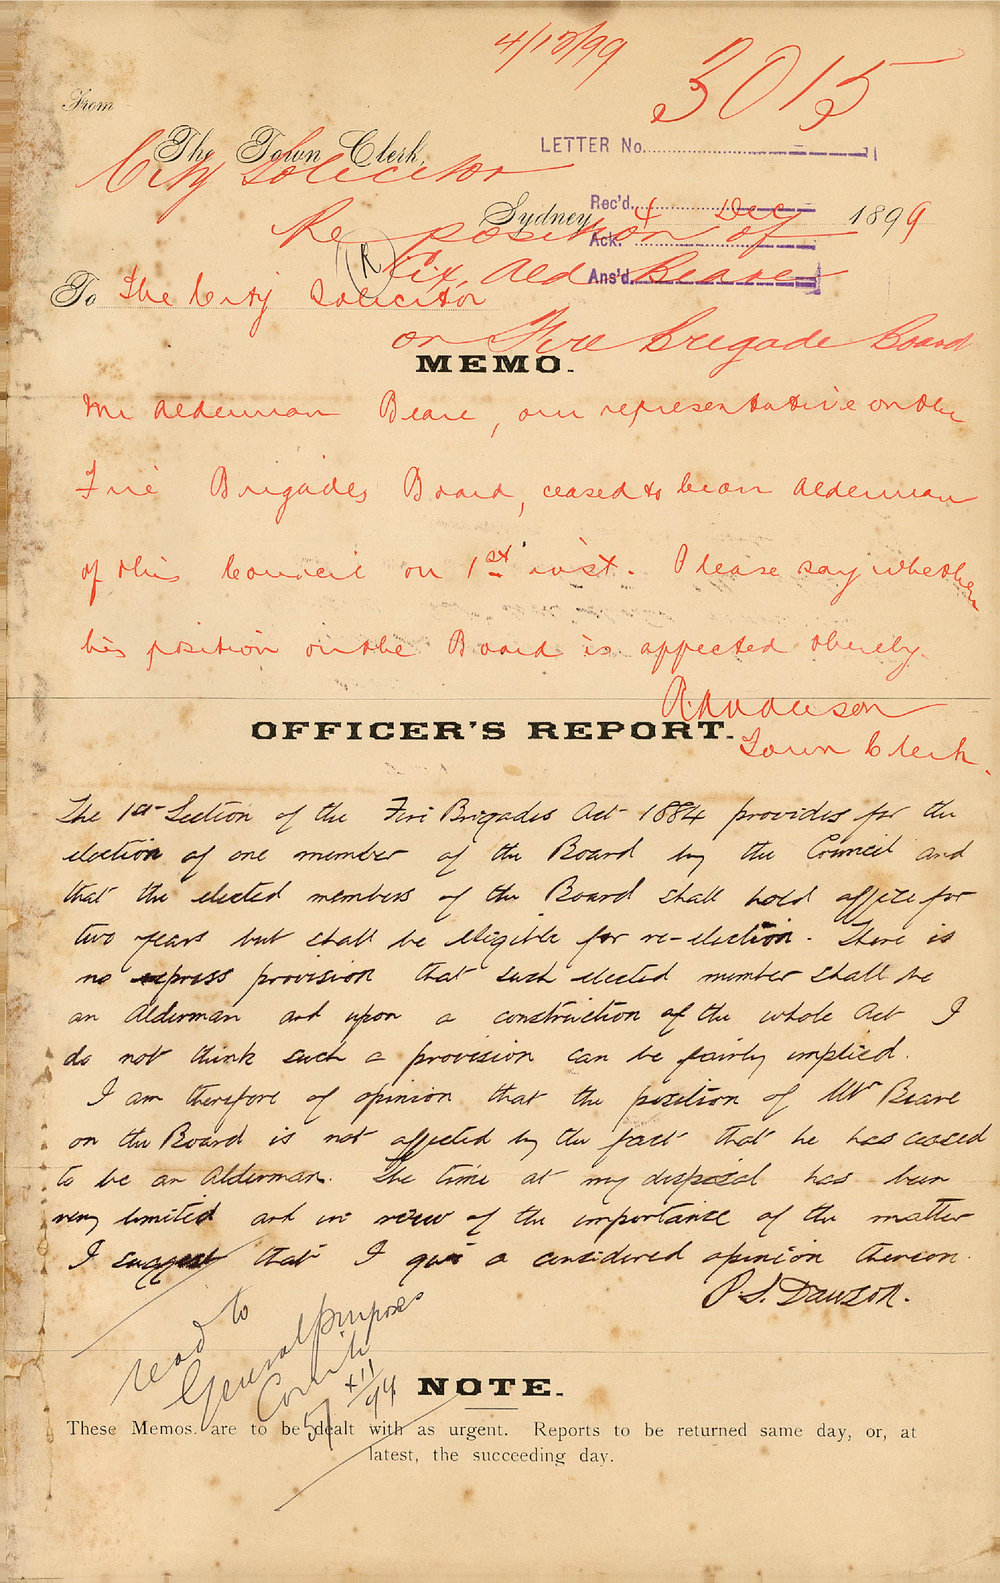 4/12/99
3015
From
The Town Clerk,
LETTER No.
City Solicitor
Rec'd. 4 Dec
Sydney 1899
Re position of
Ack.
(R)
Ex. Ald Beare
Ans'd.
To The City Solicitor
on Fire Brigade Board
MEMO.
Mr Alderman Beare, our representative on the
Fire Brigades Board, ceased to be an Alderman
of this Council on 1st inst. Please say whether
his position on the Board is affected thereby.
Town Clerk.
OFFICER'S REPORT.
The 1st Section of the Fire Brigades Act 1884 provides for the
election of one member of the Board by the Council and
that the elected members of the Board shall hold office for
two years but shall be eligible for re-election. There is
no express provision that such elected member shall be
an Alderman and upon a construction of the whole Act I
do not think such a provision can be fairly implied.
I am therefore of opinion that the position of Mr Beare
on the Board is not affected by the fact that he has ceased
to be an Alderman. The time at my disposal has been
very limited and in view of the importance of the matter
I suggest that I give a considered opinion thereon.
read to
General purposes
NOTE.
These Memos. are to be dealt with as urgent. Reports to be returned same day, or, at
latest, the succeeding day.